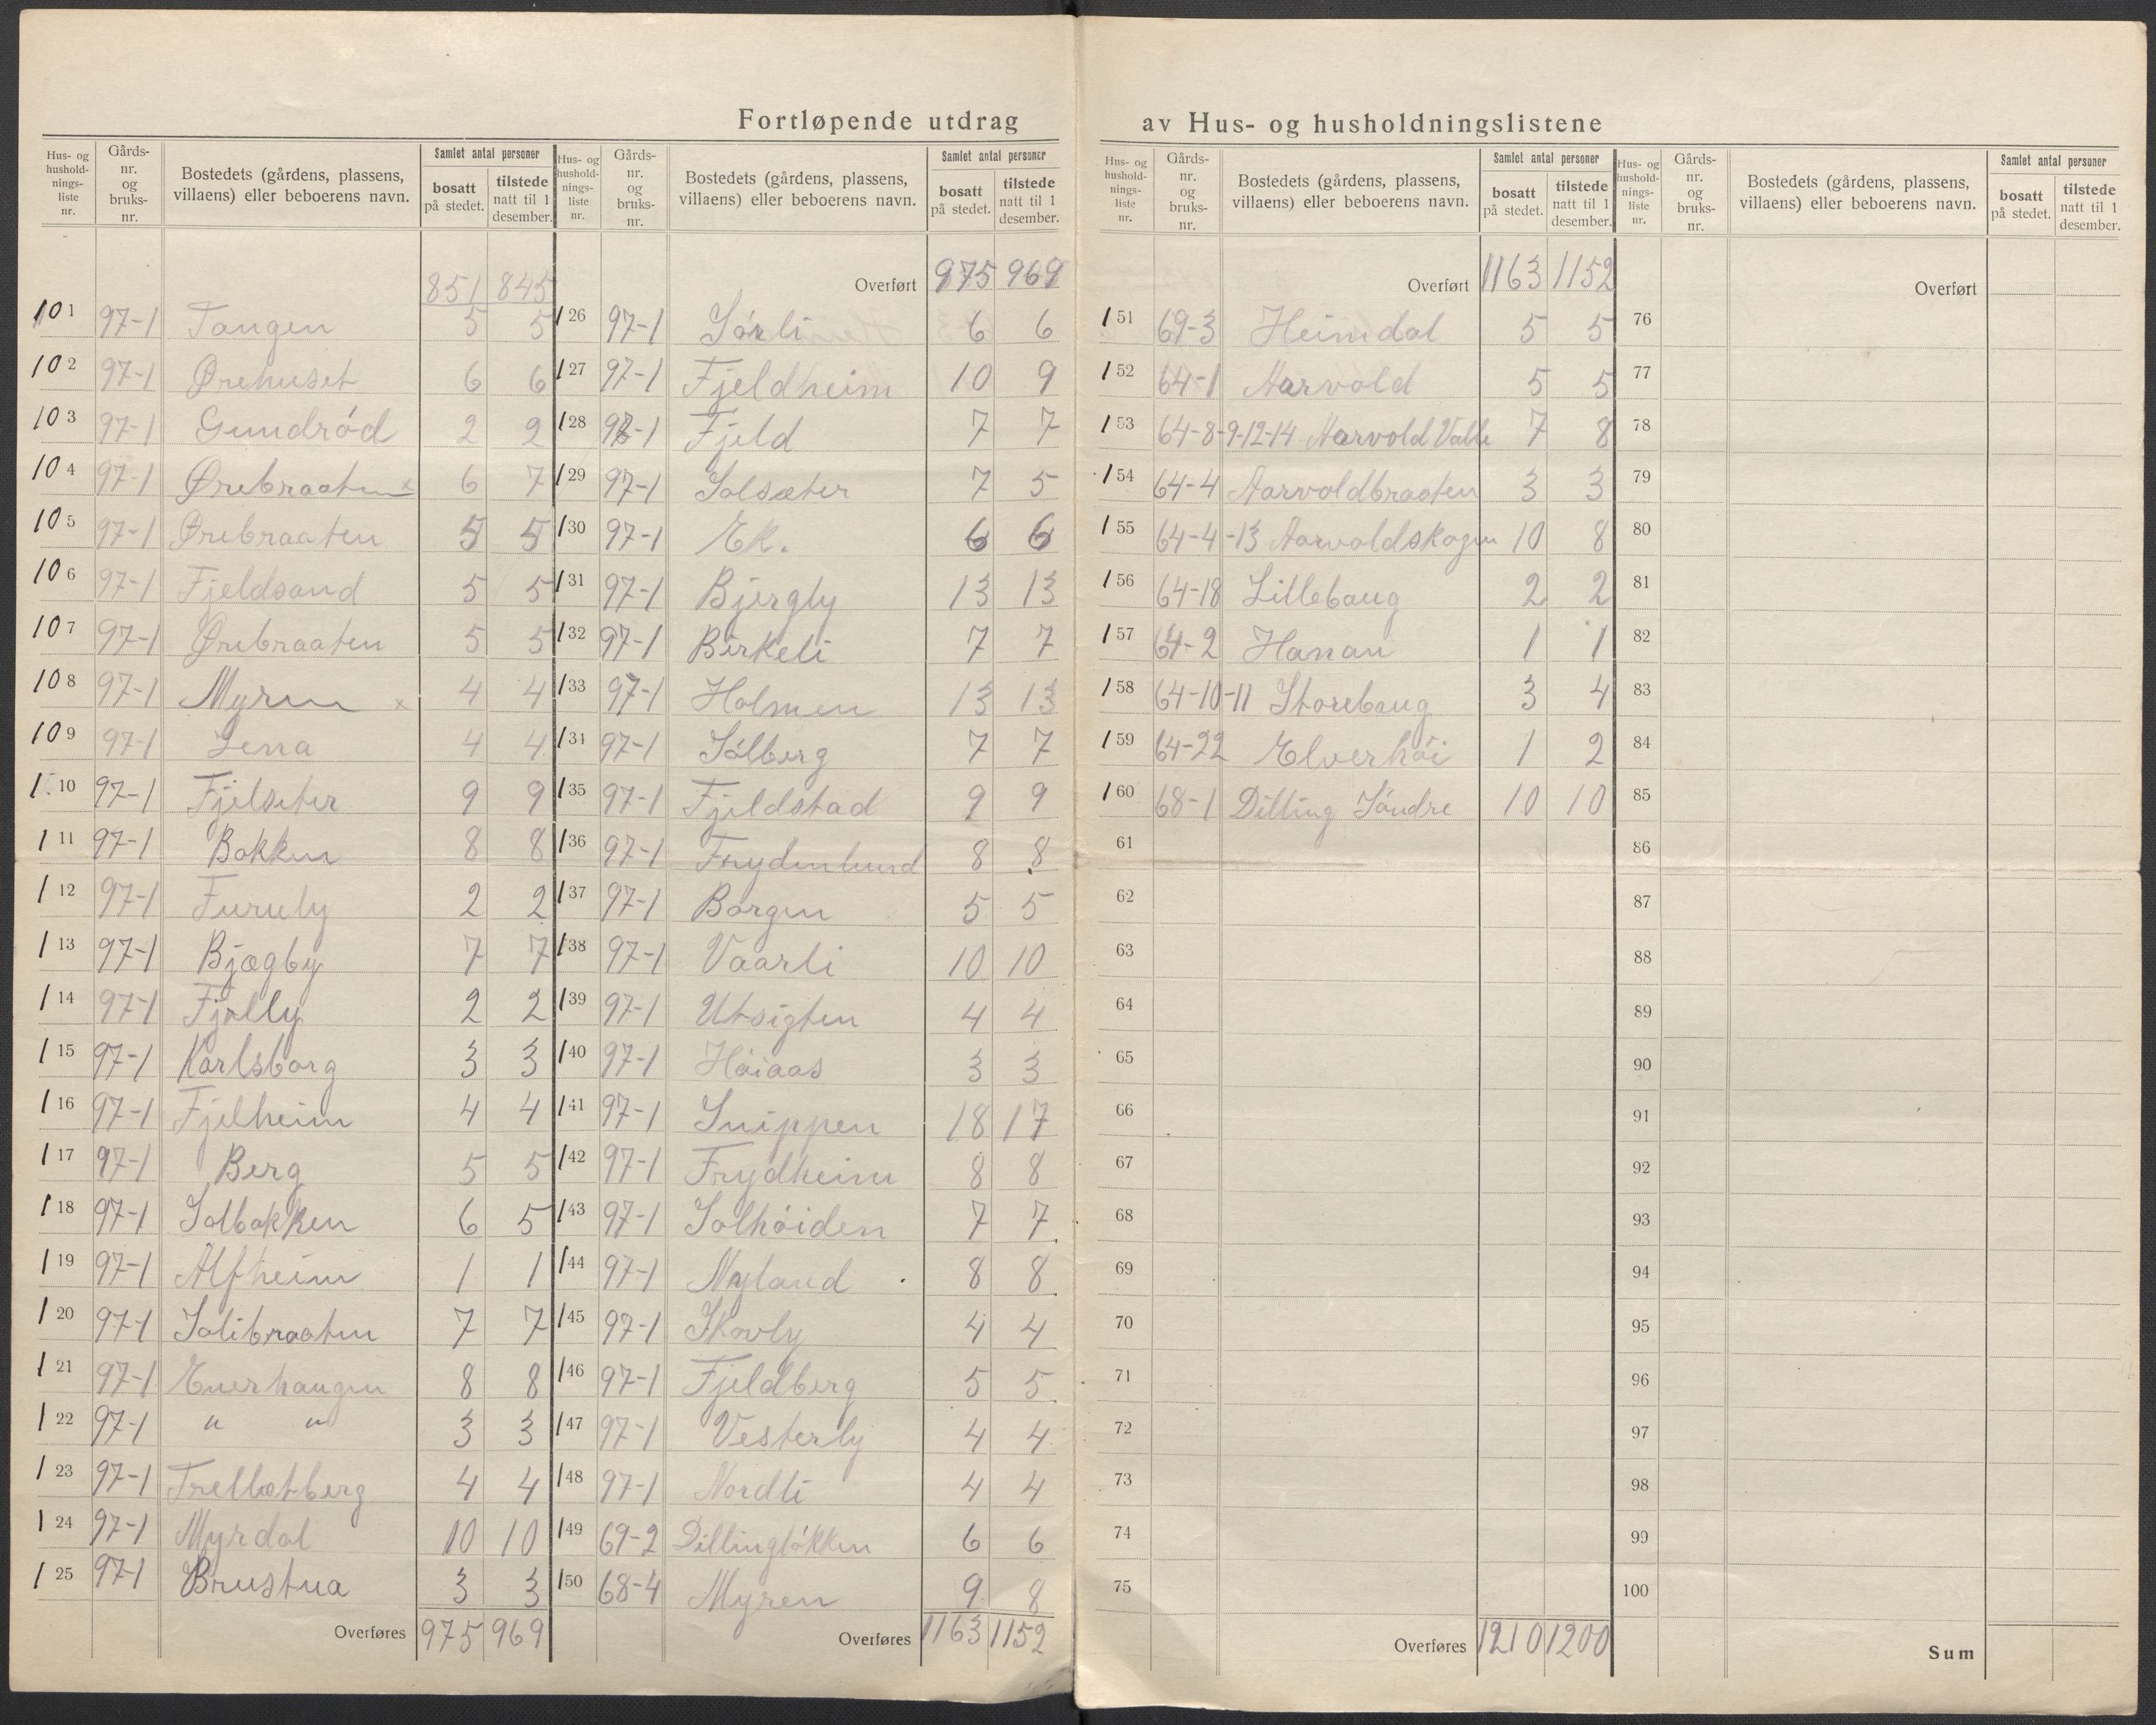 Fortløpende utdrag av Hus- og husholdningslistene
Hus- og hushold-nings-liste nr. | Gårds-nr. og bruks-nr. | Bostedets (gårdens, plassens, villaens) eller beboerens navn. | Samlet antal personer | bosatt på stedet. | tilstede natt til 1 desember.
851 845
101 97-1 Tangen 5 5
102 97-1 Ørehuset 6 6
103 97-1 Gundrød 2 2
104 97-1 Ørebraaten x 6 7
105 97-1 Ørebraaten 5 5
106 97-1 Fjeldsand 5 5
107 97-1 Ørebraaten 5 5
108 97-1 Myren x 4 4
109 97-1 Lena 4 4
110 97-1 Fjelseter 9 9
111 97-1 Bakken 8 8
112 97-1 Furuly 2 2
113 97-1 Bjægby 7 7
114 97-1 Fjelly 2 2
115 97-1 Karlsborg 3 3
116 97-1 Fjelheim 4 4
117 97-1 Berg 5 5
118 97-1 Solbakken 6 5
119 97-1 Alfheim 1 1
120 97-1 Solibraaten 7 7
121 97-1 Enerhaugen 8 8
122 97-1 " " 3 3
123 97-1 4 4
124 97-1 Myrdal 10 10
125 97-1 Brustua 3 3
Overføres 975 969
Hus- og hushold-nings-liste nr. | Gårds-nr. og bruks-nr. | Bostedets (gårdens, plassens, villaens) eller beboerens navn. | Samlet antal personer | bosatt på stedet. | tilstede natt til 1 desember.
Overført 975 969
126 97-1 Sørli 6 6
127 97-1 Fjeldheim 10 9
128 97-1 Fjeld 7 7
129 97-1 Solsæter 7 5
130 97-1 Ek. 6 6
131 97-1 Bjergly 13 13
132 97-1 Birkeli 7 7
133 97-1 Holmen 13 13
134 97-1 Sølberg 7 7
135 97-1 Fjeldstad 9 9
136 97-1 Frydenlund 8 8
137 97-1 Borgen 5 5
138 97-1 Vaarli 10 10
139 97-1 Utsigten 4 4
140 97-1 Høiaas 3 3
141 97-1 Snippen 18 17
142 97-1 Frydheim 8 8
143 97-1 Solhøiden 7 7
144 97-1 Nyland 8 8
145 97-1 Skovly 4 4
146 97-1 Fjeldberg 5 5
147 97-1 Vesterly 4 4
148 97-1 Nordli 4 4
149 69-2 Dillingløkken 6 6
150 68-4 Myren 9 8
Overføres 1163 1152
Hus- og hushold-nings-liste nr. | Gårds-nr. og bruks-nr. | Bostedets (gårdens, plassens, villaens) eller beboerens navn. | Samlet antal personer | bosatt på stedet. | tilstede natt til 1 desember.
Overført 1163 1152
151 69-3 Heimdal 5 5
152 64-1 Aarvold 5 5
153 64-8-9-12-14 Aarvold Valle 7 8
154 64-4 Aarvoldbraaten 3 3
155 64-4-13 Aarvoldskogen 10 8
156 64-18 Lillehaug 2 2
157 64-2 Hanau 1 1
158 64-10-11 Storehaug 3 4
159 64-22 Elverhøi 1 2
160 68-1 Dilling Søndre 10 10
61
62
63
64
65
66
67
68
69
70
71
72
73
74
75
Overføres 1210 1200
Hus- og hushold-nings-liste nr. | Gårds-nr. og bruks-nr. | Bostedets (gårdens, plassens, villaens) eller beboerens navn. | Samlet antal personer | bosatt på stedet. | tilstede natt til 1 desember.
Overført
76
77
78
79
80
81
82
83
84
85
86
87
88
89
90
91
92
93
94
95
96
97
98
99
100
Sum